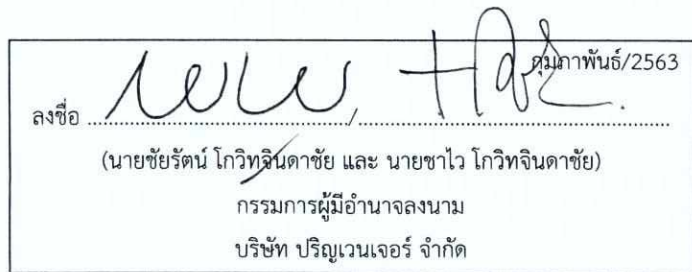 กุมภาพันธ์/2563
ลงชื่อ ........................................../..................................................
(นายชัยรัตน์ โกวิทจินดาชัย และ นายชาไว โกวิทจินดาชัย)
กรรมการผู้มีอำนาจลงนาม
บริษัท ปริญเวนเจอร์ จำกัด